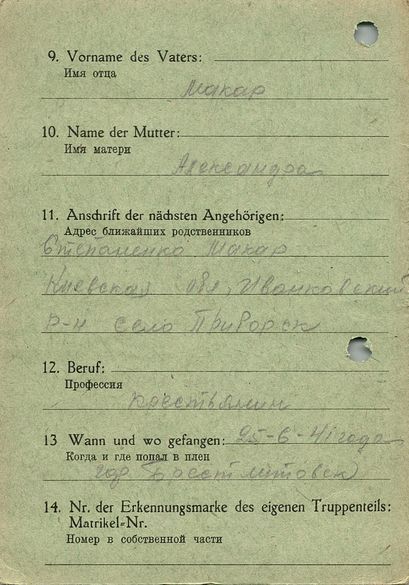 9. Vorname des Vaters:
Имя отца
Макар
10. Name der Mutter:
Имя матери
Александра
11. Anschrift der nächsten Angehörigen:
Адрес ближайших родственников
Степаненко Макар
Киевская обл, Иванковский
р-н село Приборск
12. Beruf:
Профессия
крестьянин
13 Wann und wo gefangen: 25-6-41 года
Когда и где попал в плен
гор. Брестлитовск
14. Nr. der Erkennungsmarke des eigenen Truppenteils:
Matrikel-Nr.
Номер в собственной части